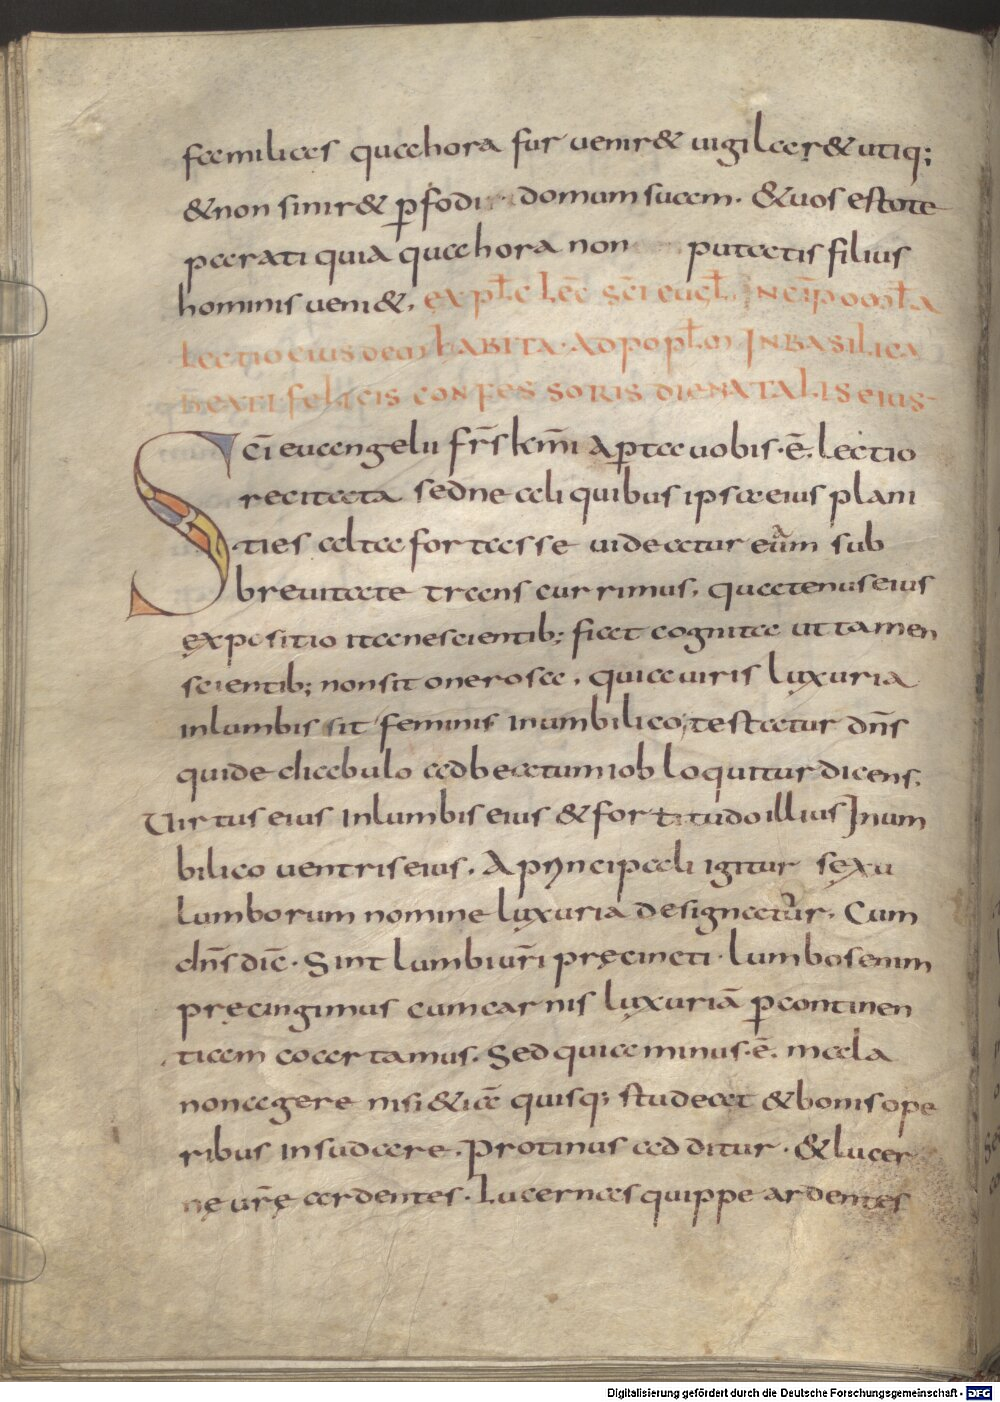 familias qua hora fur uenir& uigilar& utiq;
& non sinir& ꝑfodi domum suam. & uos estote
parati quia qua hora non putatis filius
hominis ueni&. expl̄c lēc sc̄i eugl̄. Incip̄ omł̄a
lectio eius dem habita. ad popl̄m In basilica
beati felicis confessoris die natalis eius
Sc̄i euangelii fr̄s km̄i aꝑta uobis. ē. lectio
recitata sed ne ali quibus ipsa eius plani
ties alta fortasse uideatur eūm sub
breuitate trans currimus. quatenus eius
expositio ita nescientib; fiat cognita ut tamen
scientib; non sit onerosa. quia uiris luxuria
in lumbis sit feminis in umbilico, testatur dn̄s
qui de diabulo ad beatum iob loquitur dicens.
Uirtus eius in lumbis eius & fortitudo illius In um
bilico uentris eius. A principali igitur sexu
lumborum nomine luxuria designatur. Cum
dn̄s dic̄. Sint lumbi ur̄i pręcincti. lumbos enim
pręcingimus cum carnis luxuriā ꝑ continen
tiam coartamus. Sed quia minus. ē. mala
non agere nisi & iā quisq; studeat & bonis ope
ribus insudare. Protinus additur. & lucer
nę ur̄ę ardentes. Lucernas quippe ardentes
Digitalisierung gefördert durch die Deutsche Forschungsgemeinschaft - DFG